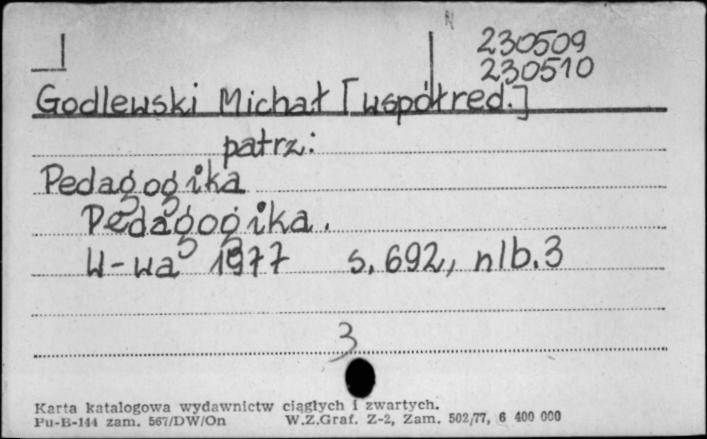 230509
230510
Godlewski Michał [współred.]
patrz:
Pedagogika
Pedagogika.
W-wa 1977 s. 692, nlb. 3
3
Karta katalogowa wydawnictw ciągłych i zwartych.
Pu-B-144 zam. 567/DW/On W.Z.Graf. Z-2, Zam. 502/77, 6 400 000